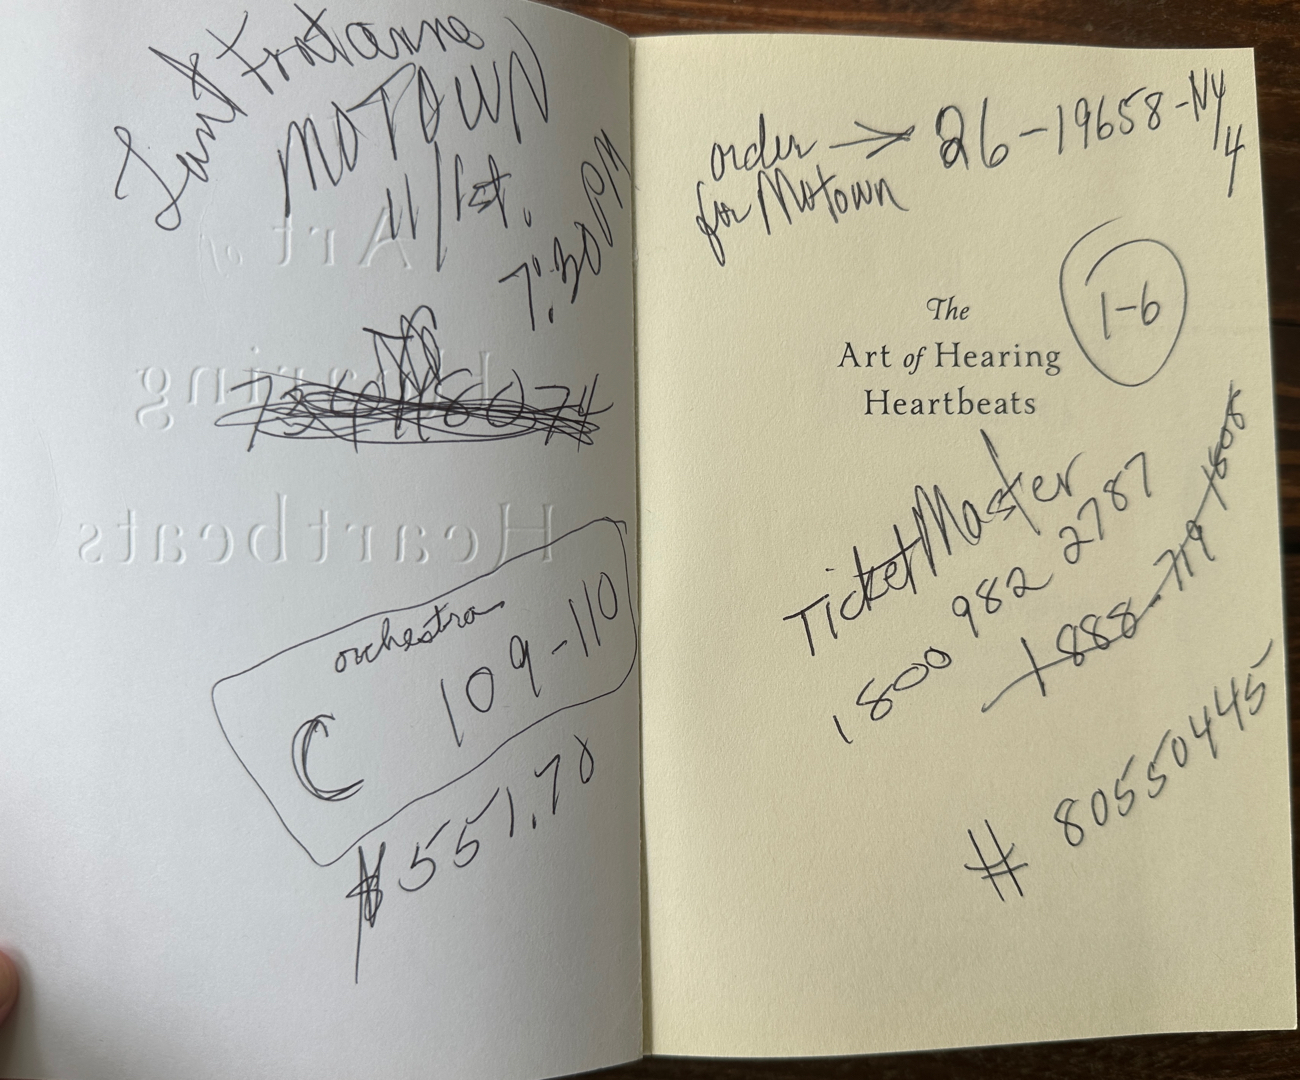 MOTOWN
11/1st.
7:30PM
Art of
Hearing
Heartbeats
orchestra
C 109-110
$551.70
order → 26-19658-NY/4
for Motown
1-6
The
Art of Hearing
Heartbeats
TicketMaster
1800 982 2787
1888-719-1508
# 80550445